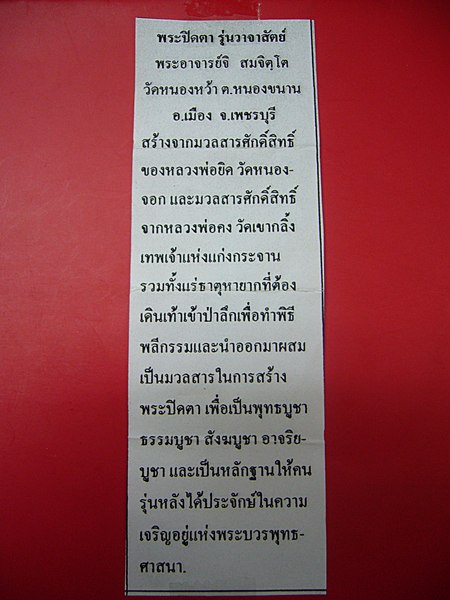 พระปิดตา รุ่นวาจาสัตย์
พระอาจารย์จิ สมจิตฺโต
วัดหนองหว้า ต.หนองขนาน
อ.เมือง จ.เพชรบุรี
สร้างจากมวลสารศักดิ์สิทธิ์
ของหลวงพ่อยิด วัดหนอง-
จอก และมวลสารศักดิ์สิทธิ์
จากหลวงพ่อคง วัดเขากลิ้ง
เทพเจ้าแห่งแก่งกระจาน
รวมทั้งแร่ธาตุหายากที่ต้อง
เดินเท้าเข้าป่าลึกเพื่อทำพิธี
พลีกรรมและนำออกมาผสม
เป็นมวลสารในการสร้าง
พระปิดตา เพื่อเป็นพุทธบูชา
ธรรมบูชา สังฆบูชา อาจริย-
บูชา และเป็นหลักฐานให้คน
รุ่นหลังได้ประจักษ์ในความ
เจริญอยู่แห่งพระบวรพุทธ-
ศาสนา.